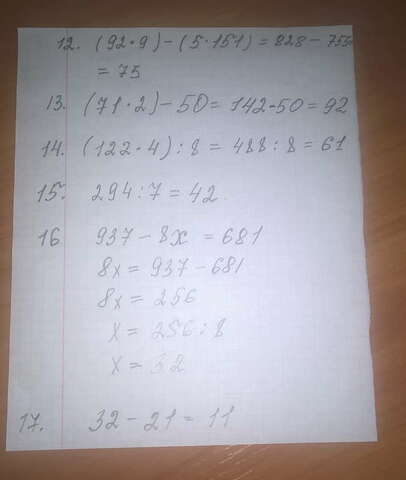 12. (92·9)-(5·151)=828-755=
=75
13. (71·2)-50=142-50=92
14. (122·4):8=488:8=61
15. 294:7=42
16 937-8x=681
8x=937-681
8x=256
x=256:8
x=32
17. 32-21=11